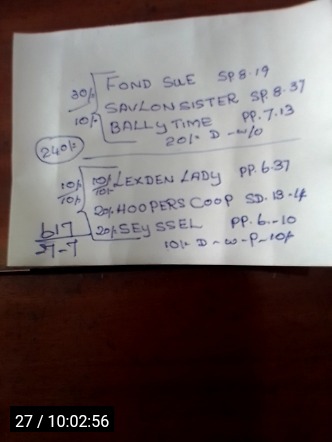 30/- FOND SUE SP 8.19
SAVLON SISTER SP. 8.37
10/- BALLY TIME PP. 7.13
20/- D - w/o
240/-
10/- 10/- LEXDEN LADY PP. 6.37
10/- 10/-
20/- HOOPERS COOP SD. 13-4
617 20/- SEYSSEL PP. 6.-10
27-7
10/- D - w - P - 10/-
27 / 10:02:56